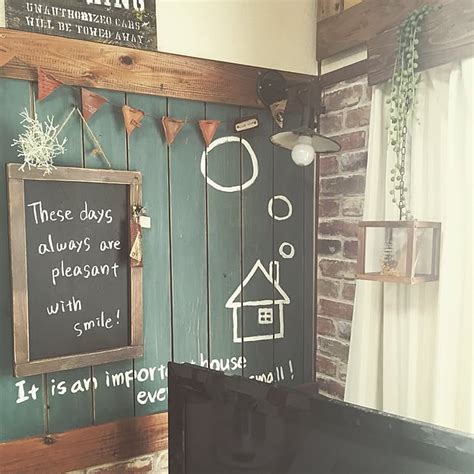 UNAUTHORIZED CARS
WILL BE TOWED AWAY
These days
always are
pleasant
with
smile!
It is an important house
even small!